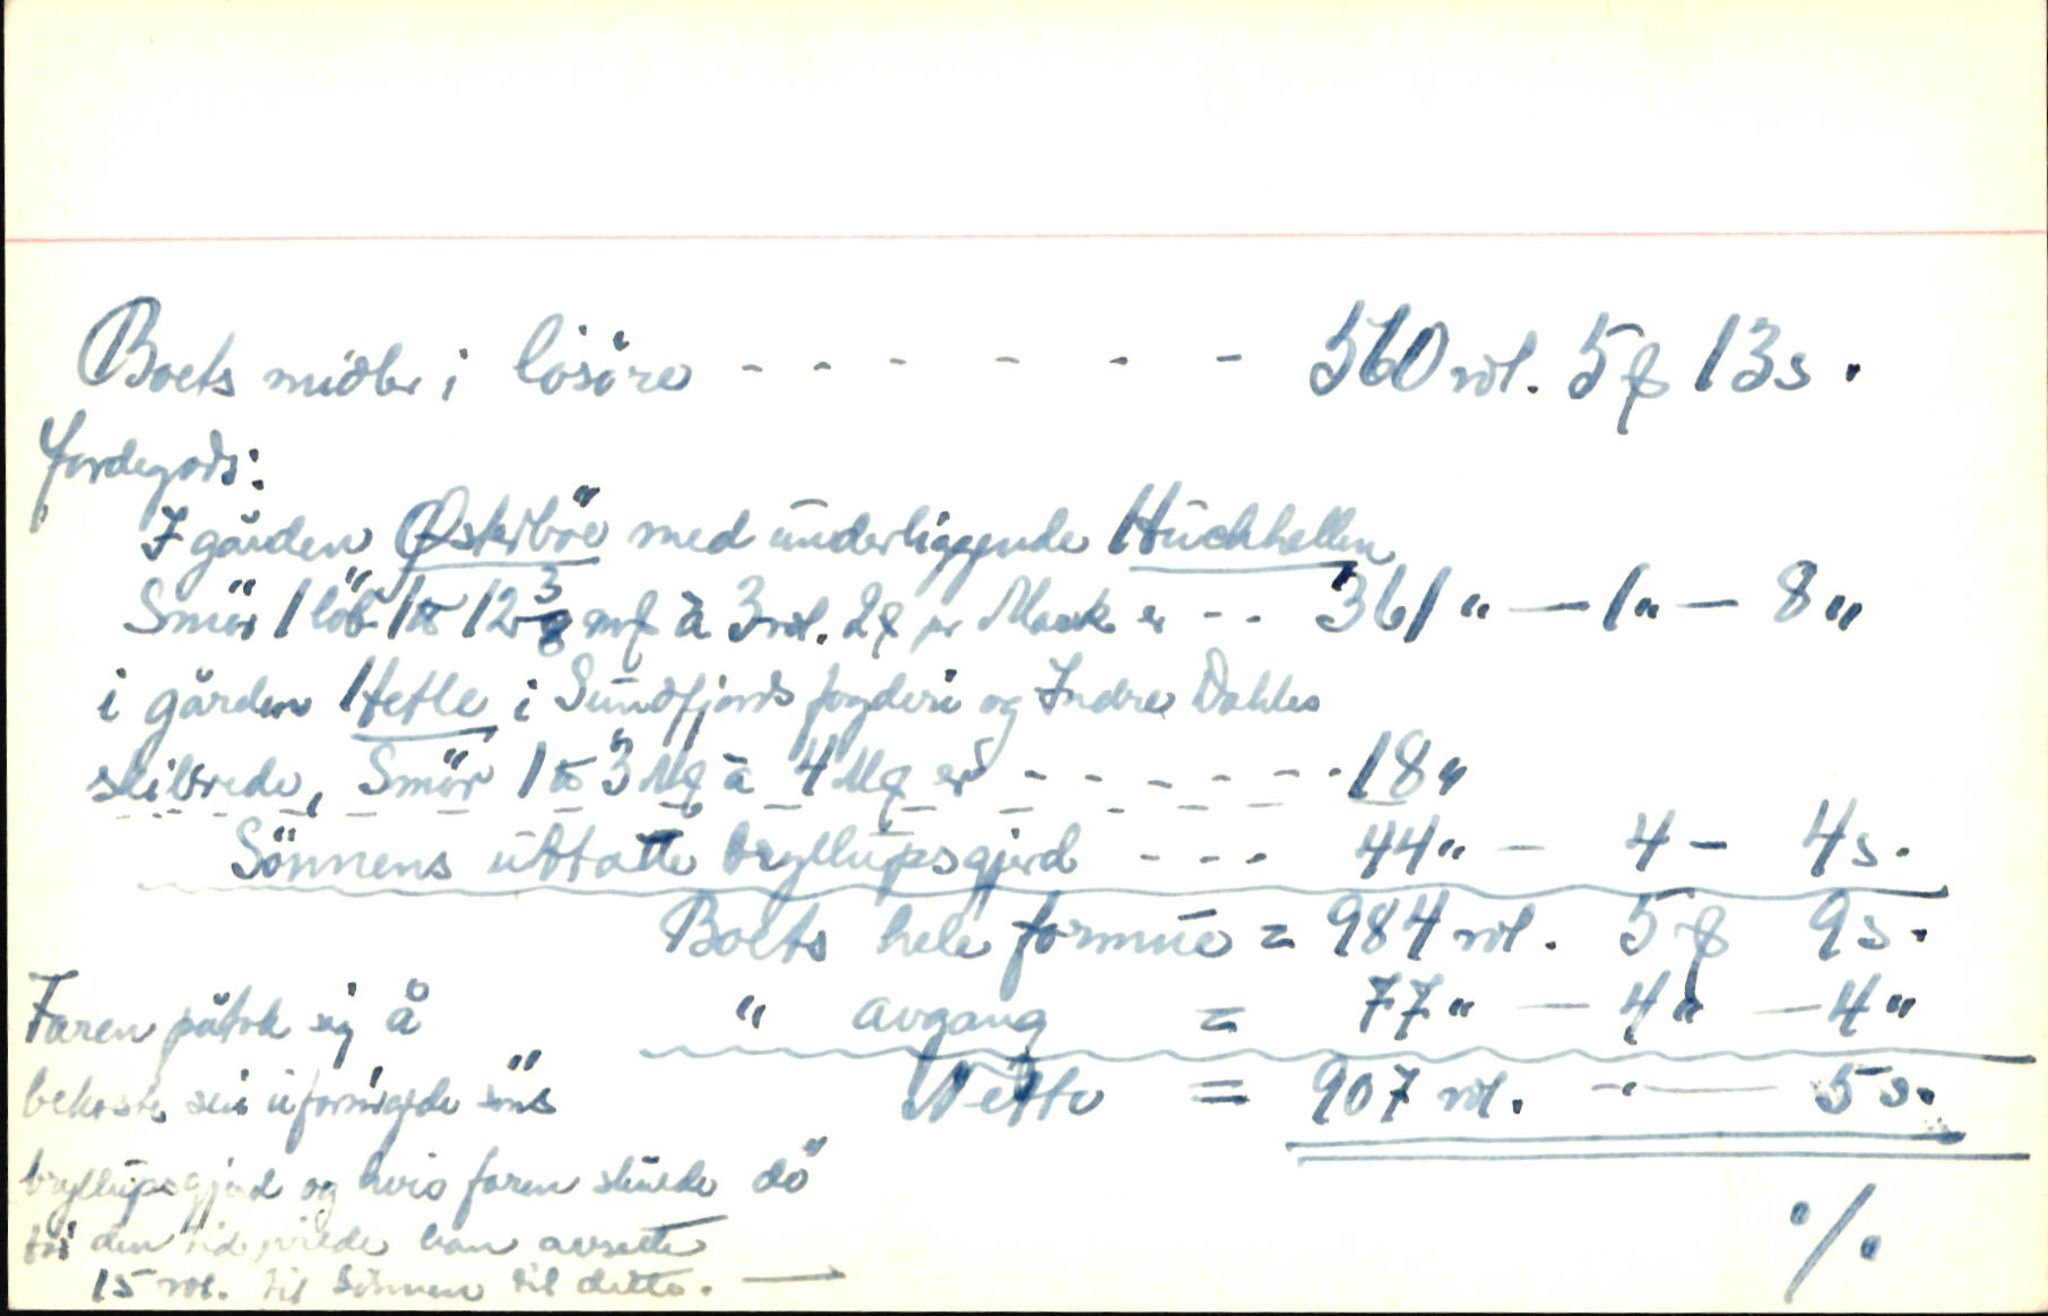 Boets midler i lösöre - - - - - - 560 rdl. 5 ꝑ 13 s.
Jordegods:
I gården Øskibö med underliggende Huchhellen
Smör 1 löb 1 ℔ 12 3/8 mꝑ à 3 rdl. 2 ꝑ pr Mark er - - 361 " — 1 " — 8 "
i gården Hetle i Sundfjords fogderi og Indre Dahles
skibrede, Smör 1 ℔ 3 Mꝑ à 4 Mꝑ er - - - - - - - 18 "
Sönnens uttatte bryllupsgjerd - - - 44 " - 4 - 4 s.
Boets hele formue = 984 rdl. 5 ꝑ 9 s.
" avgang = 77 " — 4 " — 4 "
Netto = 907 rdl. - " — 5 s.
Faren påtok sig å
bekoste sin söns
bryllupsgjerd og hvis faren skulde dö
för den tid, vilde han avsette
15 rdl. til sönnen til dette. —
./.